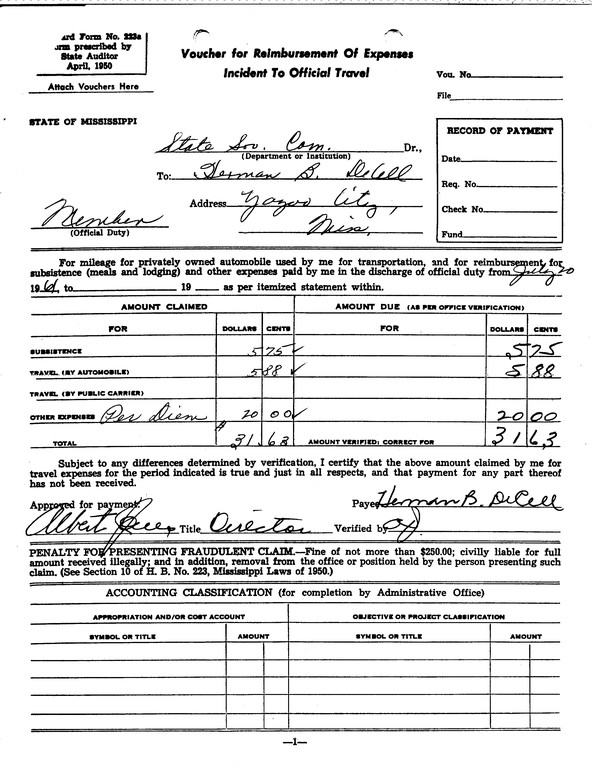 ard Form No. 223a
orm prescribed by
State Auditor
April, 1950
Attach Vouchers Here
Voucher for Reimbursement Of Expenses
Incident To Official Travel
Vou. No.
File
STATE OF MISSISSIPPI
State Sov. Com. Dr.,
(Department or Institution)
To: Herman B. DeCell
Address Yazoo City,
Miss.
Member
(Official Duty)
RECORD OF PAYMENT
Date
Req. No.
Check No.
Fund
For mileage for privately owned automobile used by me for transportation, and for reimbursement for
subsistence (meals and lodging) and other expenses paid by me in the discharge of official duty from July 20
1961, to 19 as per itemized statement within.
AMOUNT CLAIMED AMOUNT DUE (AS PER OFFICE VERIFICATION)
FOR DOLLARS CENTS FOR DOLLARS CENTS
SUBSISTENCE 5 75 ✓ 5 75
TRAVEL (BY AUTOMOBILE) 5 88 ✓ 5 88
TRAVEL (BY PUBLIC CARRIER)
OTHER EXPENSES Per Diem 20 00 ✓ 20 00
TOTAL 31 63 AMOUNT VERIFIED; CORRECT FOR 31 63
Subject to any differences determined by verification, I certify that the above amount claimed by me for
travel expenses for the period indicated is true and just in all respects, and that payment for any part thereof
has not been received.
Approved for payment: Payee Herman B. DeCell
Albert Jones Title Director Verified by
PENALTY FOR PRESENTING FRAUDULENT CLAIM.—Fine of not more than $250.00; civilly liable for full
amount received illegally; and in addition, removal from the office or position held by the person presenting such
claim. (See Section 10 of H. B. No. 223, Mississippi Laws of 1950.)
ACCOUNTING CLASSIFICATION (for completion by Administrative Office)
APPROPRIATION AND/OR COST ACCOUNT OBJECTIVE OR PROJECT CLASSIFICATION
SYMBOL OR TITLE AMOUNT SYMBOL OR TITLE AMOUNT
—1—